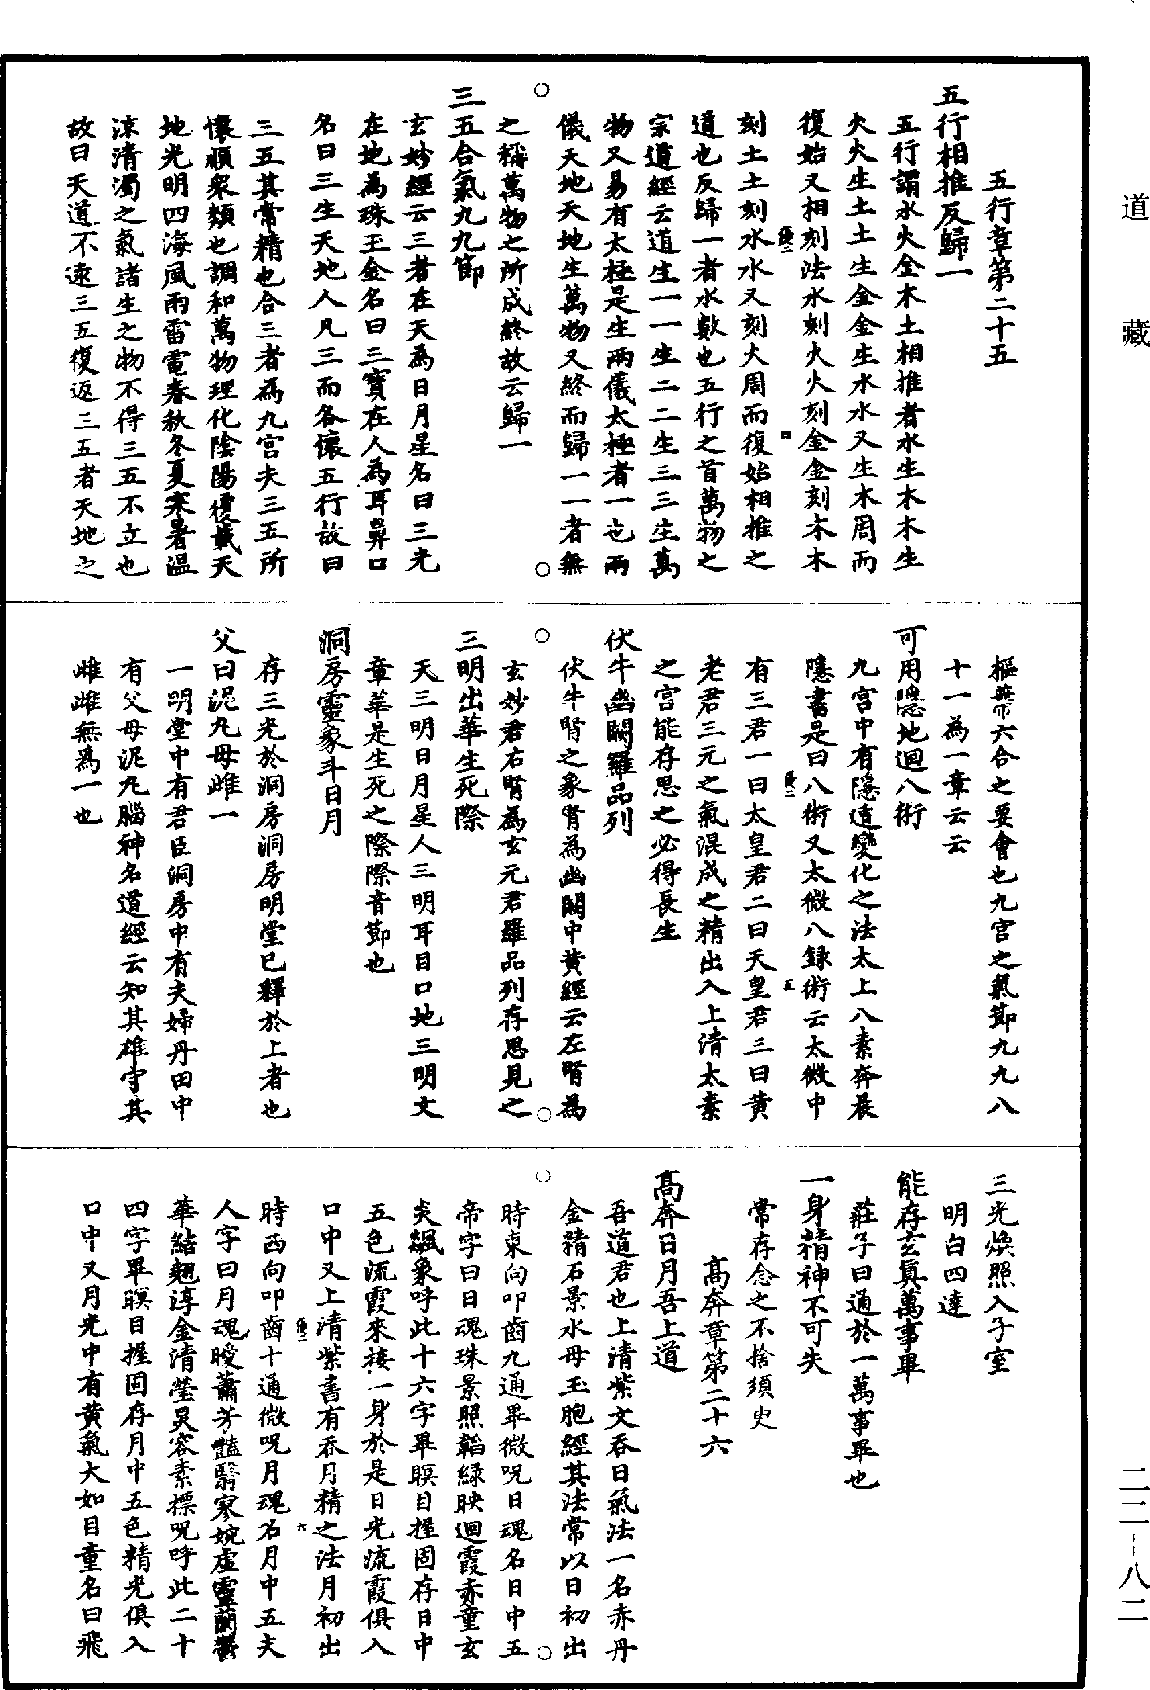 道藏
五行章第二十五
五行相推反歸一
五行謂水火金木土相推者水生木木生
火火生土土生金金生水水又生木周而
復始又相刻法水刻火火刻金金刻木木
刻土土刻水水又刻火周而復始相推之
道也反歸一者水數也五行之首萬物之
宗道經云道生一一生二二生三三生萬
物又易有太極是生兩儀太極者一也兩
儀天地天地生萬物又終而歸一一者無
之稱萬物之所成終故云歸一
三五合氣九九節
玄妙經云三者在天為日月星名曰三光
在地為珠玉金名曰三寶在人為耳鼻口
名曰三生天地人凡三而各懷五行故曰
三五其常精也合三者為九宮夫三五所
懷順衆類也調和萬物理化陰陽覆載天
地光明四海風雨雷電春秋冬夏寒暑溫
涼清濁之氣諸生之物不得三五不立也
故曰天道不遠三五復返三五者天地之
樞蔕六合之要會也九宮之氣節九九八
十一為一章云云
可用隱地迴八術
九宮中有隱遁變化之法太上八素奔晨
隱書是曰八術又太微八錄術云太微中
有三君一曰太皇君二曰天皇君三曰黃
老君三元之氣混成之精出入上清太素
之宮能存思之必得長生
伏牛幽闕羅品列
伏牛腎之象腎為幽闕中黃經云左腎為
玄妙君右腎為玄元君羅品列存思見之
三明出華生死際
天三明日月星人三明耳目口地三明文
章華是生死之際際音節也
洞房靈象斗日月
存三光於洞房洞房明堂已釋於上者也
父曰泥丸母雌一
一明堂中有君臣洞房中有夫婦丹田中
有父母泥丸腦神名道經云知其雄守其
雌雌無為一也
三光煥照入子室
明白四達
能存玄真萬事畢
莊子曰通於一萬事畢也
一身精神不可失
常存念之不捨須臾
高奔章第二十六
高奔日月吾上道
吾道君也上清紫文吞日氣法一名赤丹
金精石景水母玉胞經其法常以日初出
時東向叩齒九通畢微呪日魂名日中五
帝字曰日魂珠景照韜綠映迴霞赤童玄
炎飆象呼此十六字畢瞑目握固存日中
五色流霞來接一身於是日光流霞俱入
口中又上清紫書有吞月精之法月初出
時西向叩齒十通微呪月魂名月中五夫
人字曰月魂曖蕭芳豔翳寥婉虛靈蘭鬱
華結翹淳金清瑩炅容素標呪呼此二十
四字畢瞑目握固存月中五色精光俱入
口中又月光中有黃氣大如目童名曰飛
二二－八二